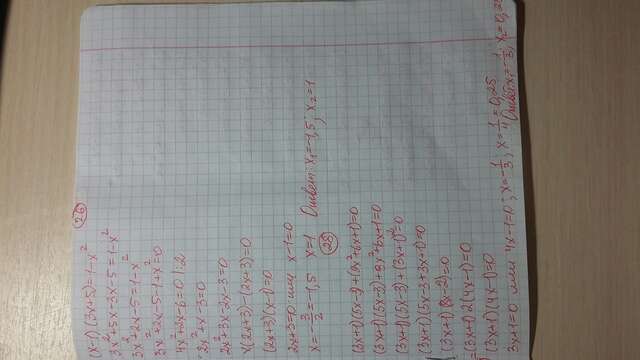 26
(x-1)(3x+5)=1-x²
3x²+5x-3x-5=1-x²
3x²+2x-5=1-x²
3x²+2x-5-1+x²=0
4x²+2x-6=0 |:2
2x²+x-3=0
2x²+3x-2x-3=0
x(2x+3)-(2x+3)=0
(2x+3)(x-1)=0
2x+3=0 или x-1=0
x=-3/2=-1,5 x=1 Ответ: x₁=-1,5; x₂=1
28
(3x+1)(5x-3)+(9x²+6x+1)=0
(3x+1)(5x-3)+9x²+6x+1=0
(3x+1)(5x-3)+(3x+1)²=0
(3x+1)(5x-3+3x+1)=0
(3x+1)(8x-2)=0
=(3x+1)2(4x-1)=0
(3x+1)(4x-1)=0
3x+1=0 или 4x-1=0; x=-1/3; x=1/4=0,25
Ответ: x=-1/3; x₂=0,25